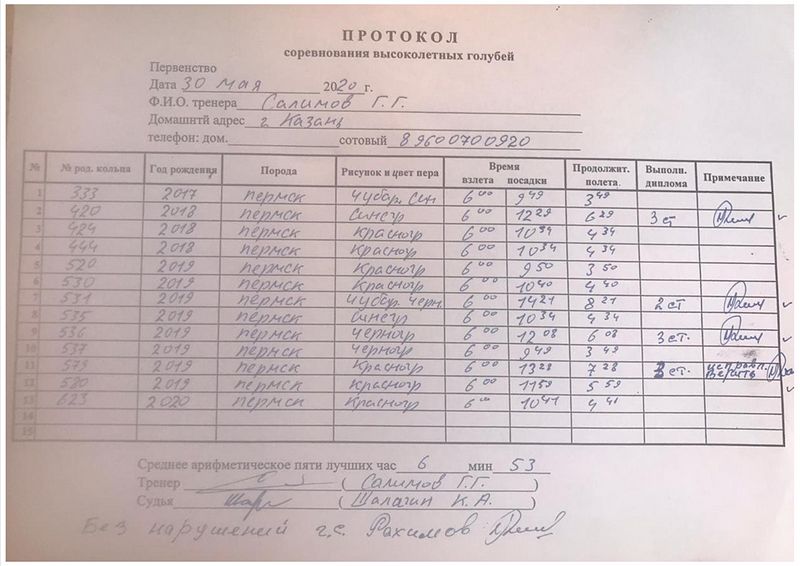 ПРОТОКОЛ
соревнования высоколетных голубей
Первенство
Дата 30 мая 2020 г.
Ф.И.О. тренера Салимов Г.Г.
Домашнтй адрес г Казань
телефон: дом. сотовый 89600700920
№ № род. кольца Год рождения Порода Рисунок и цвет пера Время взлета посадки Продолжит. полета. Выполн. диплома Примечание
1 333 2017 пермск чубар. син 6 00 9 49 3 49
2 420 2018 пермск синегр 6 00 12 29 6 29 3 ст
3 424 2018 пермск красногр 6 00 10 34 4 34
4 444 2018 пермск красногр 6 00 10 34 4 34
5 520 2019 пермск красногр 6 00 9 50 3 50
6 530 2019 пермск красногр 6 00 10 40 4 40
7 531 2019 пермск чубар. черн. 6 00 14 21 8 21 2 ст
8 535 2019 пермск синегр 6 00 10 34 4 34
9 536 2019 пермск черногр 6 00 12 08 6 08 3 ст.
10 537 2019 пермск черногр 6 00 9 49 3 49
11 579 2019 пермск красногр 6 00 13 28 7 28 ст. исправл. верить
12 580 2019 пермск красногр 6 00 11 59 5 59
13 623 2020 пермск красногр 6 00 10 41 4 41
14
15
Среднее арифметическое пяти лучших час 6 мин 53
Тренер ( Салимов Г.Г. )
Судья ( Шалагин К.А. )
Без нарушений г.с. Рахимов